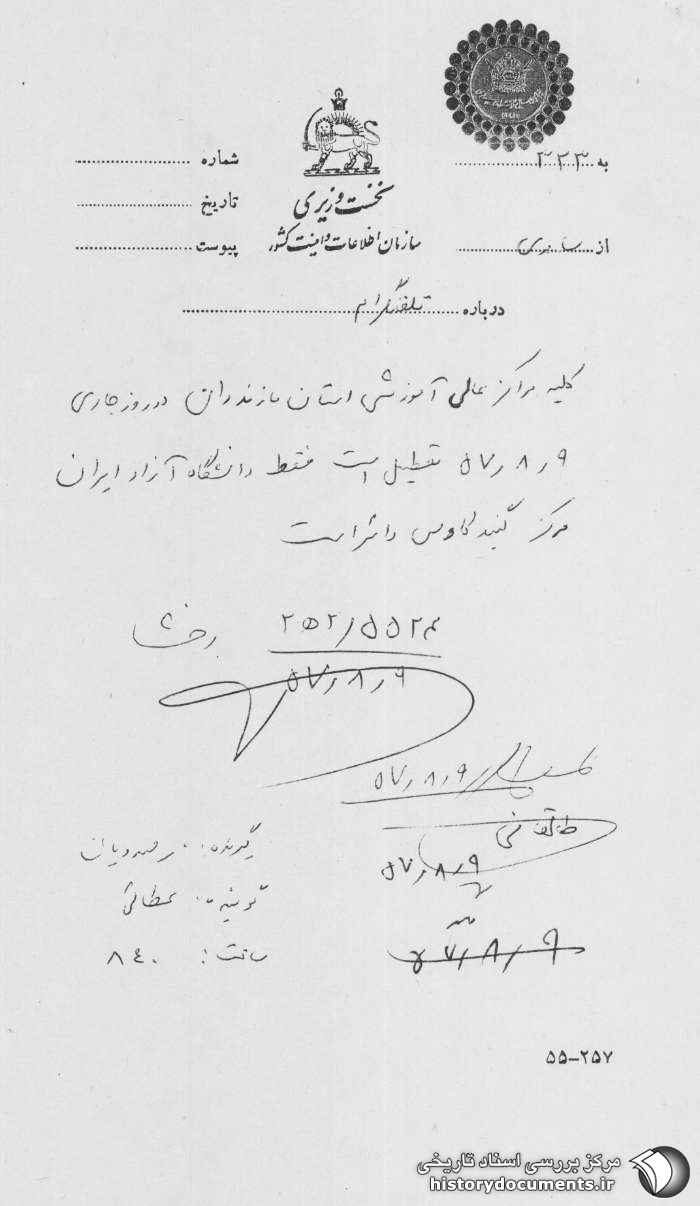 به ۳۳۳
شماره
نخست وزیری
تاریخ
سازمان اطلاعات و امنیت کشور
از ساری
پیوست
درباره تلفنگرام
کلیه مراکز عالی آموزشی استان مازندران در روز جاری
۵۷٫۸٫۹ تعطیل است فقط دانشگاه آزاد ایران
مرکز گنبدکاوس دائر است
۲۵۲/۵۵۲۴
۵۷٫۸٫۹
۵۷٫۸٫۹
۵۷٫۸٫۹
گیرنده:
گوینده: عطائی
ساعت: ۸۴۰
۵۷٫۸٫۹
۵۵–۲۵۷
مرکز بررسی اسناد تاریخی
historydocuments.ir